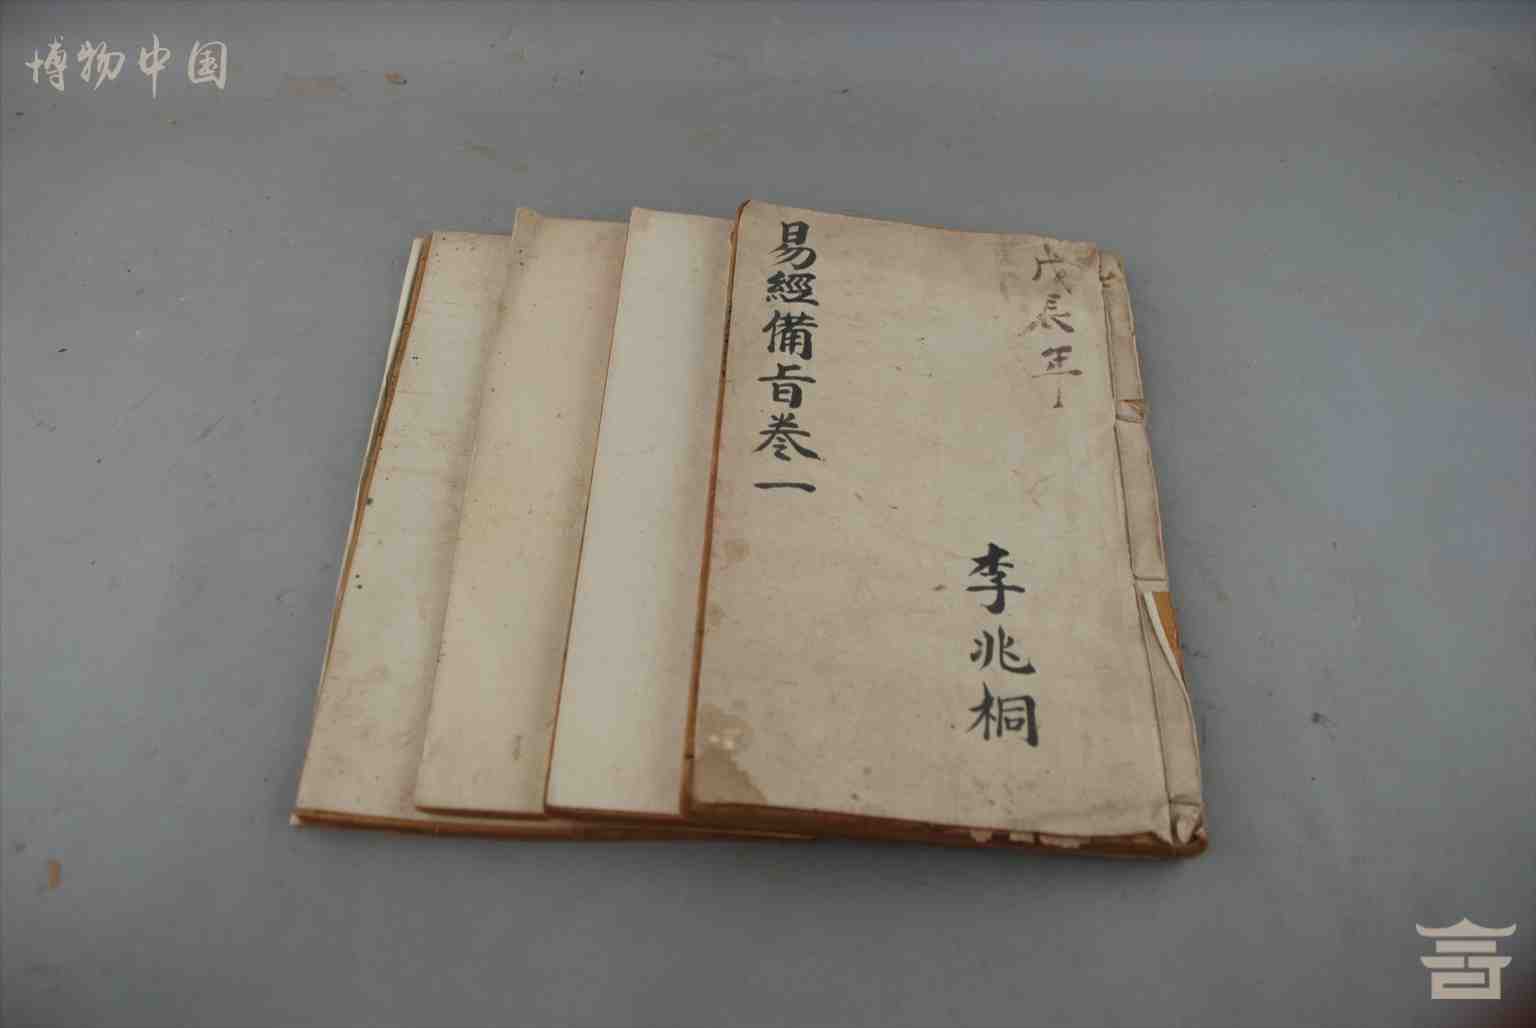 博物中国
戊辰年
李兆桐
易經備旨卷一